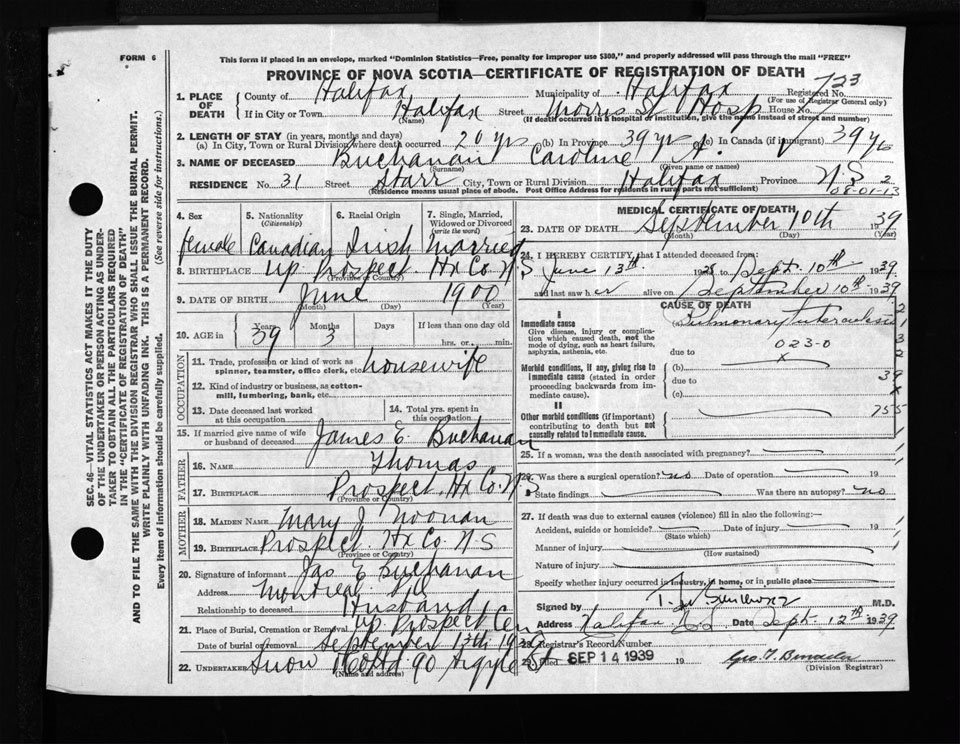 FORM 6
This form if placed in an envelope, marked "Dominion Statistics—Free, penalty for improper use $300," and properly addressed will pass through the mail "FREE"
PROVINCE OF NOVA SCOTIA—CERTIFICATE OF REGISTRATION OF DEATH
SEC. 46—VITAL STATISTICS ACT MAKES IT THE DUTY
OF THE UNDERTAKER OR PERSON ACTING AS UNDER-
TAKER TO OBTAIN ALL THE PARTICULARS REQUIRED
IN THE "CERTIFICATE OF REGISTRATION OF DEATH"
AND TO FILE THE SAME WITH THE DIVISION REGISTRAR WHO SHALL ISSUE THE BURIAL PERMIT.
WRITE PLAINLY WITH UNFADING INK. THIS IS A PERMANENT RECORD.
Every item of information should be carefully supplied. (See reverse side for instructions.)
1. PLACE OF DEATH County of Halifax Municipality of Halifax Registered No. 723
(For use of Registrar General only)
If in City or Town Halifax Street Morris St Hosp House No.
(Name) (If death occurred in a hospital or institution, give the name instead of street and number)
2. LENGTH OF STAY (in years, months and days)
(a) In City, Town or Rural Division where death occurred 20 yrs (b) In Province 39 yrs (c) In Canada (if immigrant) 39 yrs
3. NAME OF DECEASED Buchanan Caroline A.
(Surname) (Given name or names)
RESIDENCE No. 31 Street Starr City, Town or Rural Division Halifax Province N.S 2
(Residence means usual place of abode. Post Office Address for residents in rural parts not sufficient) 08-01-13
4. Sex 5. Nationality (Citizenship) 6. Racial Origin 7. Single, Married, Widowed or Divorced (write the word)
female Canadian Irish Married
8. BIRTHPLACE Up. Prospect. Hx Co. N.S
9. DATE OF BIRTH June 1900
(Month) (Day) (Year)
10. AGE in Years Months Days If less than one day old
39 3 hrs. or min.
OCCUPATION
11. Trade, profession or kind of work as
spinner, teamster, office clerk, etc. housewife
12. Kind of industry or business, as cotton-
mill, lumbering, bank, etc.
13. Date deceased last worked
at this occupation 14. Total yrs. spent in
this occupation
15. If married give name of wife
or husband of deceased James E. Buchanan
FATHER
16. NAME Thomas
17. BIRTHPLACE Prospect. Hx Co. N.S
(Province or Country)
MOTHER
18. MAIDEN NAME Mary J Noonan
19. BIRTHPLACE Prospect. Hx Co. N-S
(Province or Country)
20. Signature of informant Jas E Buchanan
Address Montreal
Relationship to deceased Husband
21. Place of Burial, Cremation or Removal Up. Prospect Cem
Date of burial or removal September 13th 1939
22. UNDERTAKER Snow & Co Ltd 90 Argyle St
(Name and address)
MEDICAL CERTIFICATE OF DEATH
23. DATE OF DEATH September 10th 1939
(Month) (Day) (Year)
24. I HEREBY CERTIFY, that I attended deceased from:
June 13th 1938 to Sept. 10th 1939
and last saw her alive on September 10th 1939
CAUSE OF DEATH
I
Immediate cause Pulmonary tuberculosis
Give disease, injury or complica-
tion which caused death, not the
mode of dying, such as heart failure,
asphyxia, asthenia, etc.
023-0
due to
x
Morbid conditions, if any, giving rise to
immediate cause (stated in order
proceeding backwards from im-
mediate cause).
(b)
due to 39
x
(c)
II
Other morbid conditions (if important)
contributing to death but not
causally related to immediate cause.
755
25. If a woman, was the death associated with pregnancy?
26. Was there a surgical operation? no Date of operation 19
State findings Was there an autopsy? no
27. If death was due to external causes (violence) fill in also the following:—
Accident, suicide or homicide? Date of injury 19
(State which)
Manner of injury
(How sustained)
Nature of injury
Specify whether injury occurred in industry, in home, or in public place
Signed by M.D.
Address Halifax N.S Date Sept. 12th 1939
28. Registrar's Record Number
29. Filed SEP 14 1939 19
(Division Registrar)